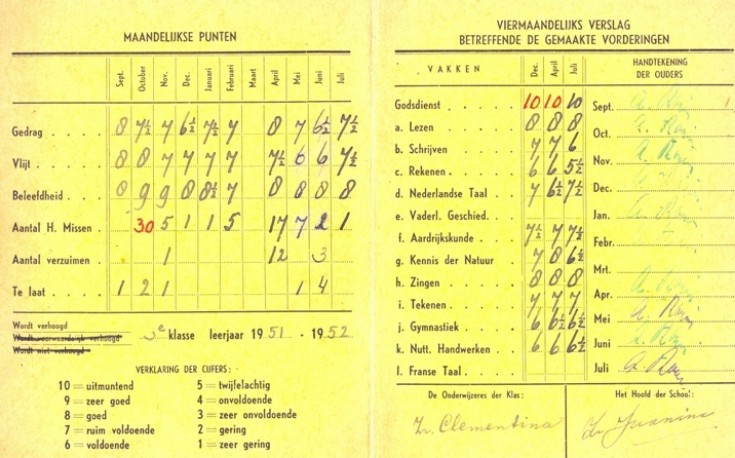 MAANDELIJKSE PUNTEN
Sept. October Nov. Dec. Januari Februari Maart April Mei Juni Juli
Gedrag . . . . 8 7½ 7 6½ 7½ 7 8 7 6½ 7½
Vlijt . . . . 8 8 7 7 7 7 7½ 6 6 7½
Beleefdheid . . . . 8 9 9 8 8½ 7 8 8 8 8
Aantal H. Missen . . 30 5 1 1 5 17 7 2 1
Aantal verzuimen . . 1 12 3
Te laat . . . . 1 2 1 1 4
Wordt verhoogd
Wordt voorwaardelijk verhoogd
Wordt niet verhoogd
3e klasse leerjaar 1951 - 1952
VERKLARING DER CIJFERS:
10 = uitmuntend 5 = twijfelachtig
9 = zeer goed 4 = onvoldoende
8 = goed 3 = zeer onvoldoende
7 = ruim voldoende 2 = gering
6 = voldoende 1 = zeer gering
VIERMAANDELIJKS VERSLAG
BETREFFENDE DE GEMAAKTE VORDERINGEN
VAKKEN Dec. April Juli
Godsdienst . . . . 10 10 10
a. Lezen . . . . 8 8 8
b. Schrijven . . . . 7 7 6
c. Rekenen . . . . 6 6 5½
d. Nederlandse Taal . . 7 6½ 7½
e. Vaderl. Geschied. . .
f. Aardrijkskunde . . . 7½ 7 7½
g. Kennis der Natuur . . 7 8 6½
h. Zingen . . . . 8 8 8
i. Tekenen . . . . 7 7 7
j. Gymnastiek . . . . 6 6½ 6½
k. Nutt. Handwerken . . 6 6 6½
l. Franse Taal . . . .
HANDTEKENING
DER OUDERS
Sept.
Oct.
Nov.
Dec.
Jan.
Febr.
Mrt.
Apr.
Mei
Juni
Juli
De Onderwijzeres der Klas:
Zr. Clementina
Het Hoofd der School:
Zr